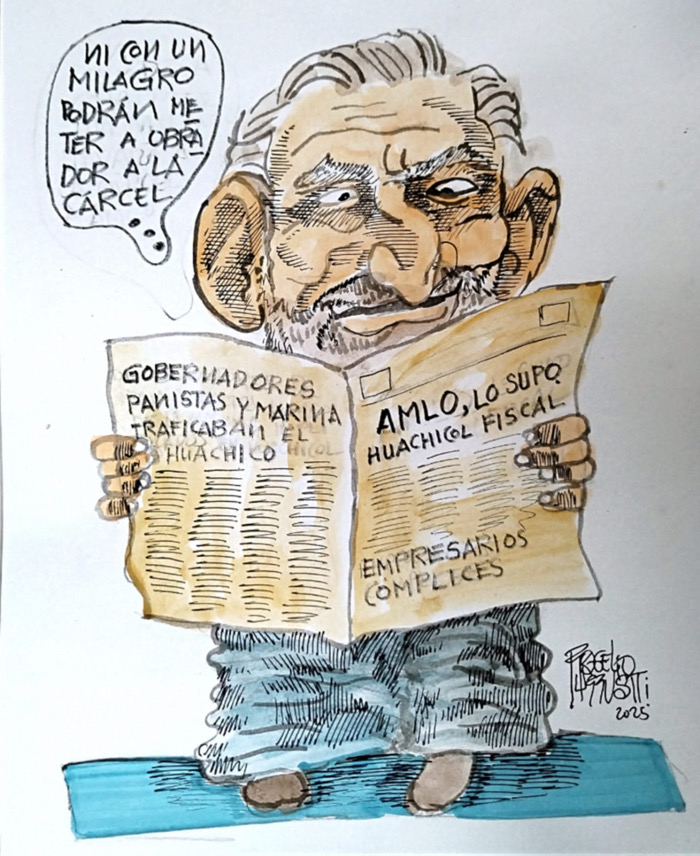 NI CON UN
MILAGRO
PODRÁN ME
TER A OBRA
DOR A LA
CÁRCEL
GOBERNADORES
PANISTAS Y MARINA
TRAFICABAN EL
HUACHICO
AMLO, LO SUPO
HUACHICOL FISCAL
EMPRESARIOS
COMPLICES
2025